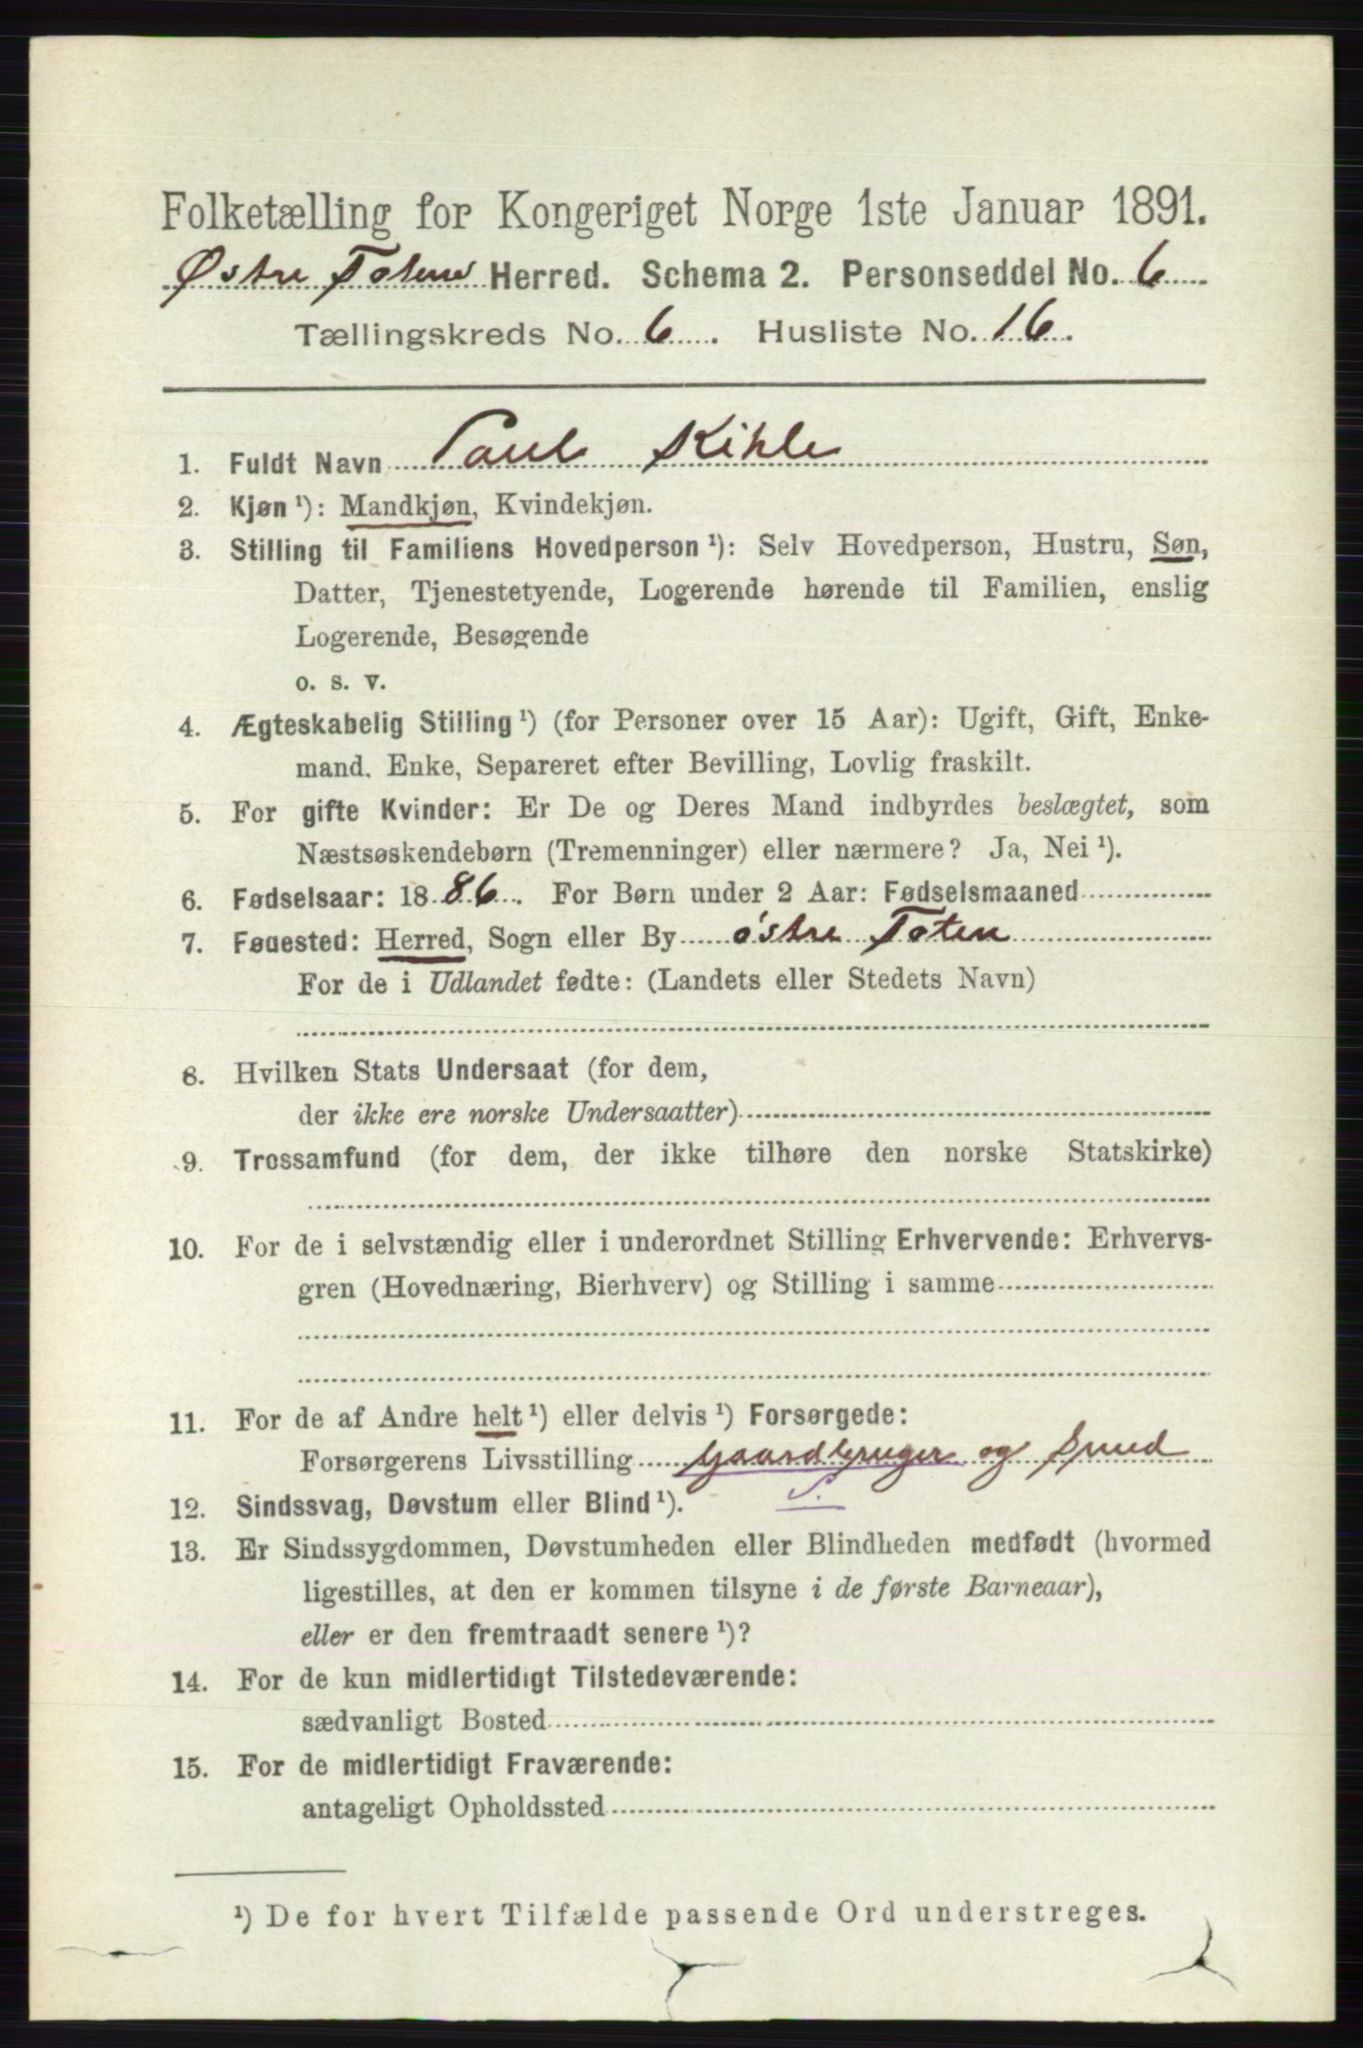 Folketælling for Kongeriget Norge 1ste Januar 1891.
Østre Toten Herred. Schema 2. Personseddel No. 6
Tællingskreds No. 6. Husliste No. 16.
1. Fuldt Navn Paul Kihle
2. Kjøn ¹): Mandkjøn, Kvindekjøn.
3. Stilling til Familiens Hovedperson ¹): Selv Hovedperson, Hustru, Søn,
Datter, Tjenestetyende, Logerende hørende til Familien, enslig
Logerende, Besøgende
o. s. v.
4. Ægteskabelig Stilling ¹) (for Personer over 15 Aar): Ugift, Gift, Enke-
mand. Enke, Separeret efter Bevilling, Lovlig fraskilt.
5. For gifte Kvinder: Er De og Deres Mand indbyrdes beslægtet, som
Næstsøskendebørn (Tremenninger) eller nærmere? Ja, Nei ¹).
6. Fødselsaar: 1886. For Børn under 2 Aar: Fødselsmaaned
7. Fødested: Herred, Sogn eller By østre Toten
For de i Udlandet fødte: (Landets eller Stedets Navn)
8. Hvilken Stats Undersaat (for dem,
der ikke ere norske Undersaatter)
9. Trossamfund (for dem, der ikke tilhøre den norske Statskirke)
10. For de i selvstændig eller i underordnet Stilling Erhvervende: Erhvervs-
gren (Hovednæring, Bierhverv) og Stilling i samme
11. For de af Andre helt ¹) eller delvis ¹) Forsørgede:
Forsørgerens Livsstilling Gaardbruger og Smed
S.
12. Sindssvag, Døvstum eller Blind ¹).
13. Er Sindssygdommen, Døvstumheden eller Blindheden medfødt (hvormed
ligestilles, at den er kommen tilsyne i de første Barneaar),
eller er den fremtraadt senere ¹)?
14. For de kun midlertidigt Tilstedeværende:
sædvanligt Bosted
15. For de midlertidigt Fraværende:
antageligt Opholdssted
¹) De for hvert Tilfælde passende Ord understreges.